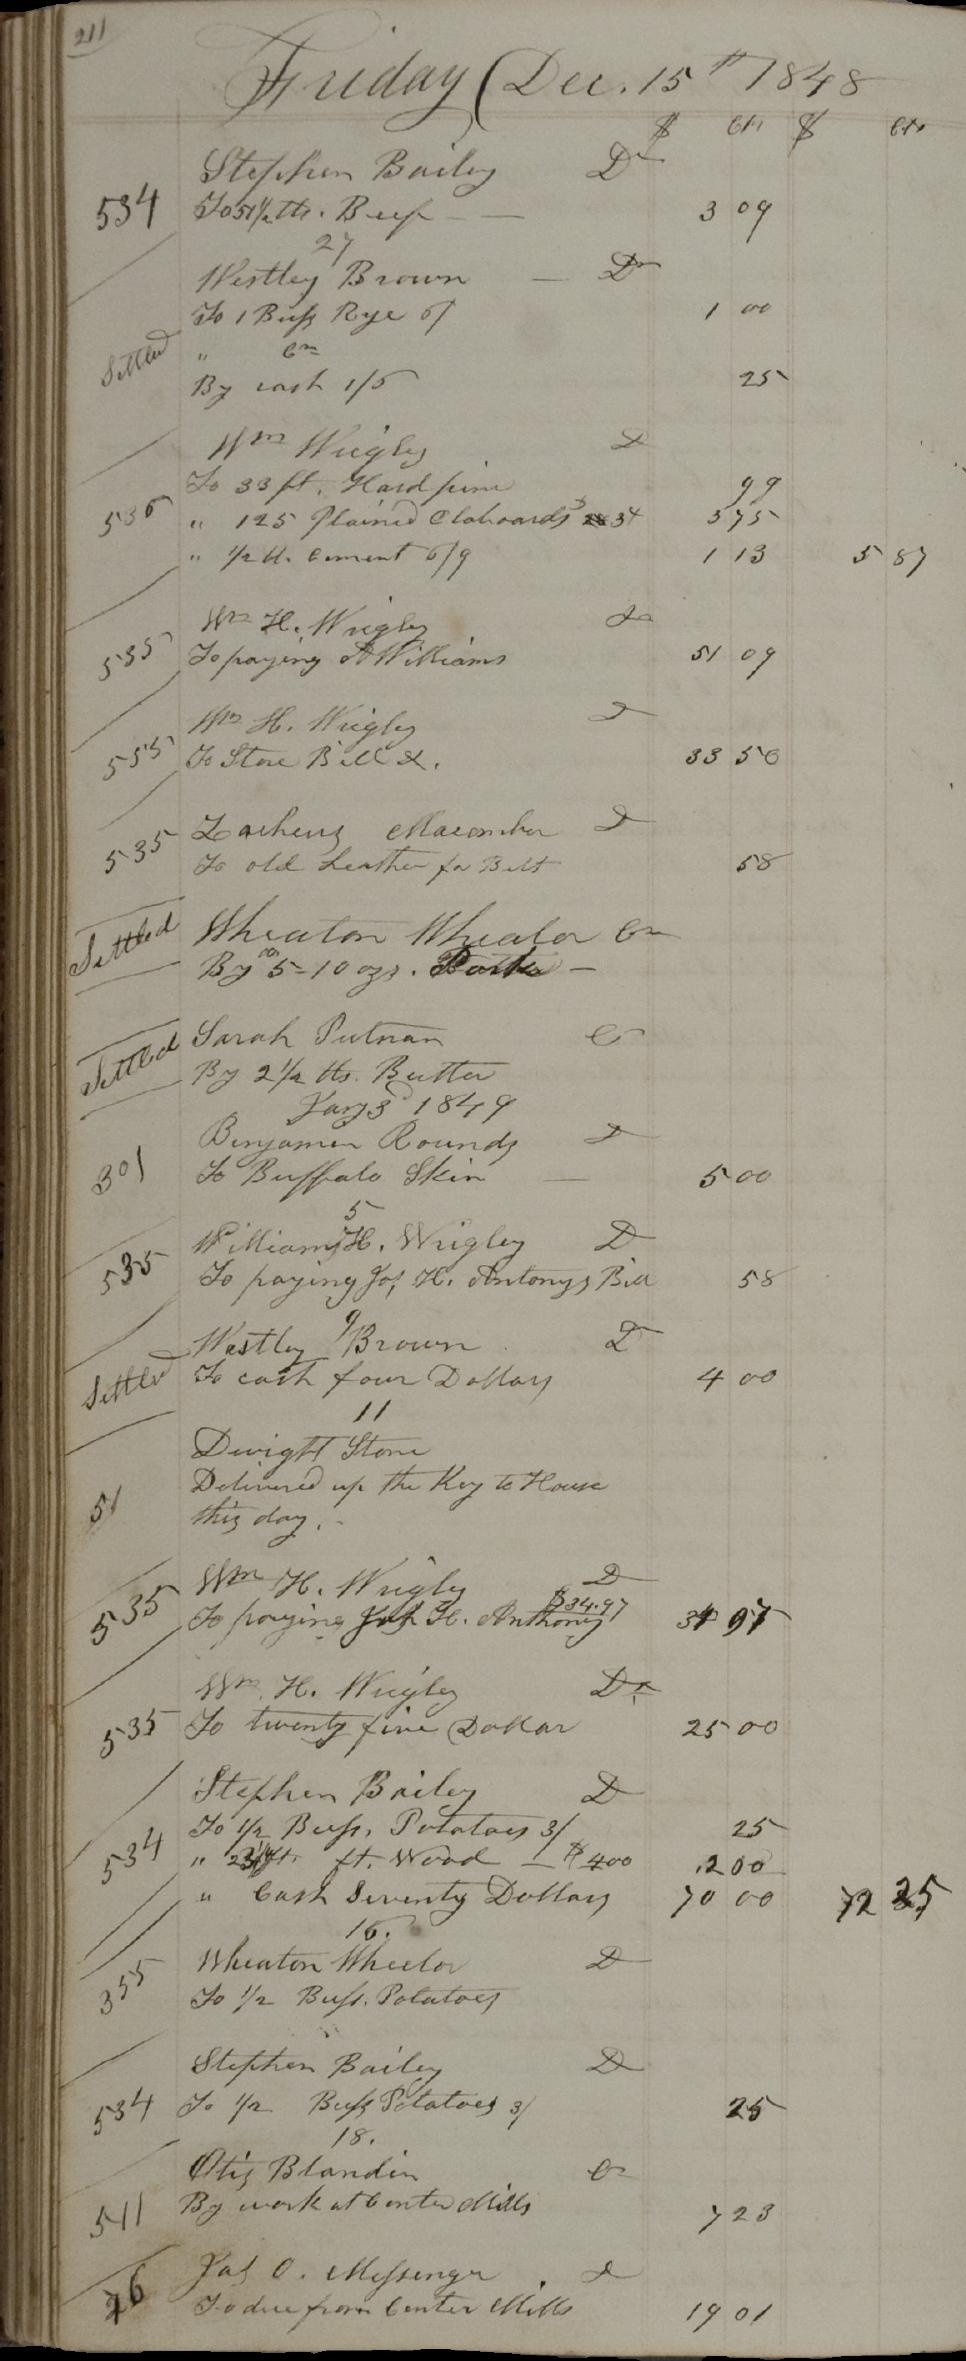 211
Friday Dec. 15th 1848
$ cts $ cts
Stephen Bailey Dr
534 To 51 1/2 lbs. Beef 3 09
27
Westley Brown Dr
To 1 Bush Rye 6/ 1 00
Settled " Cr
By cash 1/6 25
Wm Wrigley D
To 33 ft. Hard pine 99
536 " 125 Plained Claboards 34 375
" 1/2 bl. Cement 6/9 1 13 5 87
Wm H. Wrigley Dr
535 To paying A Williams 51 09
Wm H. Wrigley D
535 To Store Bill &. 33 50
Zacheus Macomber D
535 To old Leather for Belt 58
Settled Wheaton Wheelor Cr
By 5 - 10 ozs. Pork
Settled Sarah Putnam Cr
By 2 1/2 lbs. Butter
Jany 3d 1849
Benjamin Rounds D
301 To Buffalo Skin 5 00
5
William H. Wrigley D
535 To paying Jas H. Antonys Bill 58
9
Westley Brown D
Settled To cash four Dollars 4 00
11
Dwight Stone
51 Delivered up the Key to House
this day.
Wm H. Wrigley D
$34.97
535 To paying Jas H. Anthony 34 97
Wm. H. Wrigley Dr
535 To twenty five Dollar 25 00
Stephen Bailey D
To 1/2 Bush. Potatoes 3/ 25
534 " ft. Wood $400 200
" Cash Seventy Dollars 70 00 72 25
16.
Wheaton Wheelor D
355 To 1/2 Bush. Potatoes
Stephen Bailey D
534 To 1/2 Bush Potatoes 3/ 25
18.
Otis Blandin Cr
511 By work at Center Mills 7 23
Jas O. Messenger D
26 To due from Center Mills 19 01